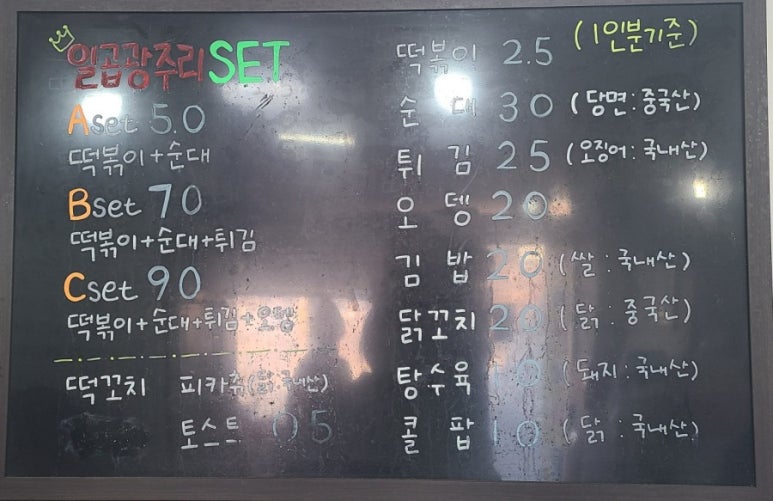 일곱광주리 SET
A set 5.0
떡볶이+순대
B set 70
떡볶이+순대+튀김
C set 90
떡볶이+순대+튀김+오뎅
떡꼬치 피카츄(닭:국내산)
토스트 05
떡볶이 2.5 (1인분기준)
순대 30 (당면:중국산)
튀김 25 (오징어:국내산)
오뎅 20
김밥 20 (쌀:국내산)
닭꼬치 20 (닭:중국산)
탕수육 (돼지:국내산)
콜팝 10 (닭:국내산)